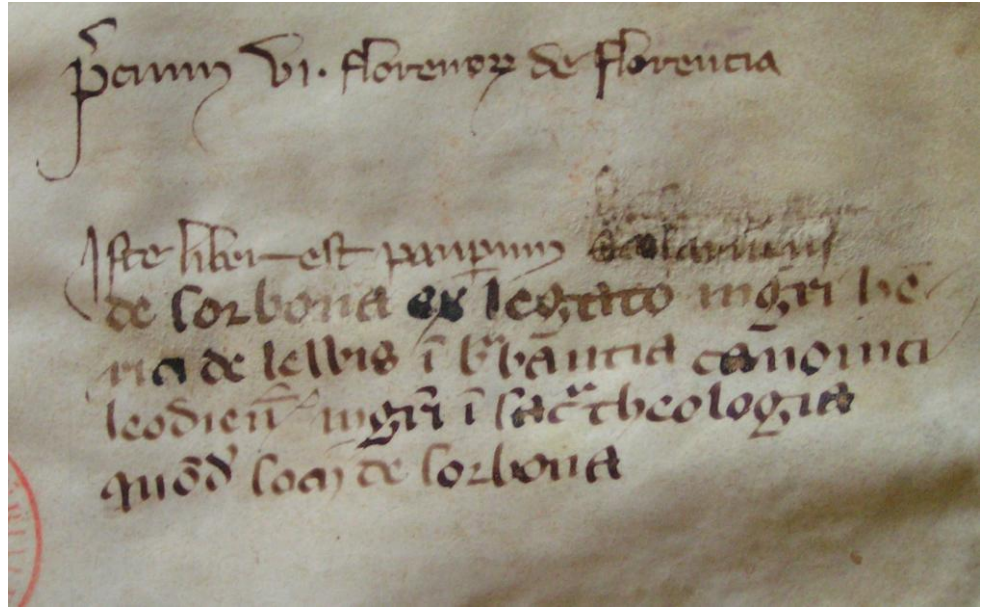 p̄cium vi. florenoꝝ de florencia
Iste liber est paup̲um scolarium
de sorbona ex legato mgr̄i hē
rici de lewis ī bͥbāntia canonici
leodien̄ mgr̄i ī sacᵃ theologia
quōd̓ socij de sorbona